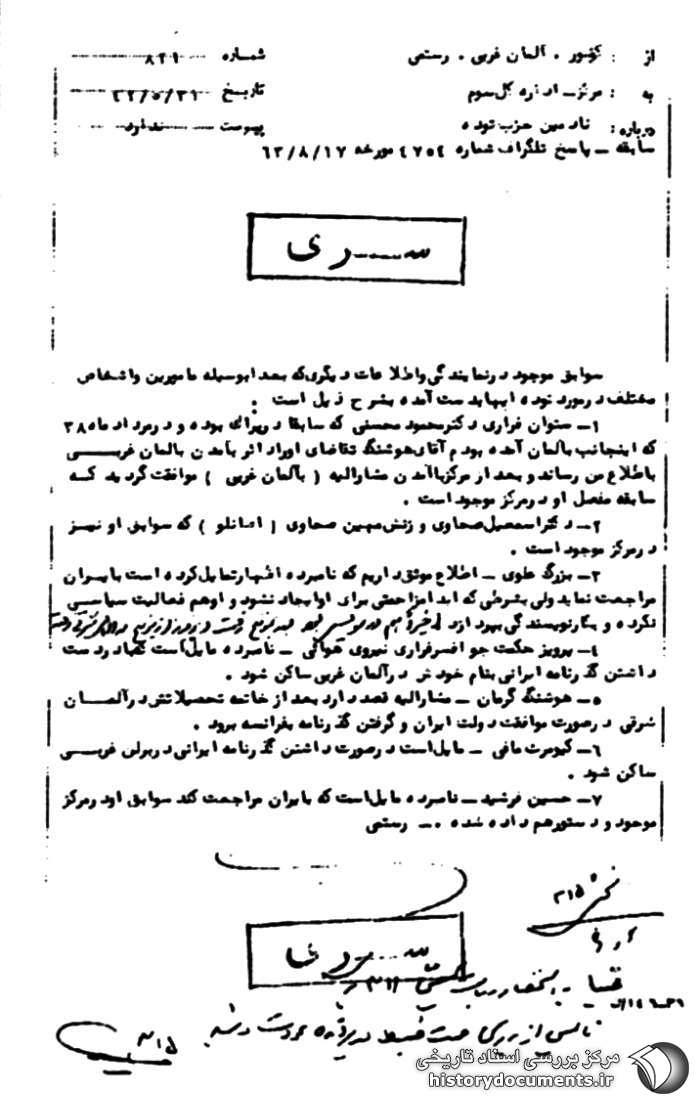 از : کشور . آلمان غربی . رستمی شماره ۸۲۱
به : مرکز ـ اداره کل سوم تاریخ
درباره : نادمین حزب توده پیوست ندارد
سابقه ـ پاسخ تلگراف شماره ۴۷۵۴ مورخه ۶۳/۸/۱۷
سـری
سوابق موجود در نمایندگی و اطلاعات دیگری که بعدا بوسیله مامورین و اشخاص
مختلف در مورد توده ایها بدست آمده بشرح ذیل است :
۱ـ ستوان فراری دکتر محمود محسنی که سابقا در بوده و در مرداد ماه ۳۸
که اینجانب بالمان آمده بودم آقای هوشنگ تقاضای او را دائر بآمدن بالمان غربـی
باطلاع من رساند و بعد از مرکز باآمدن مشارالیه ( بآلمان غربی ) موافقت گردید کـه
سابقه مفصل او در مرکز موجود است .
۲ـ دکتر اسمعیل صحاوی و زنش مهین صحاوی ( اصانلو ) که سوابق او نیـز
در مرکز موجود است .
۳ـ بزرگ علوی ـ اطلاع موثق داریم که نامبرده اظهار تمایل کرده است بایـران
مراجعت نماید ولی بشرطی که ابدا مزاحمتی برای او ایجاد نشود و او هم فعالیت سیاسـی
نکرده و بکار نویسندگی بپردازد اخیراً هم در
۴ـ پرویز حکمت جو افسر فراری نیروی هوائی ـ نامبرده مایل است که با در دست
داشتن گذرنامه ایرانی بنام خودش در آلمان غربی ساکن شود .
۵ـ هوشنگ گرمان ـ مشارالیه قصد دارد بعد از خاتمه تحصیلاتش در آلمـان
شرقی در صورت موافقت دولت ایران و گرفتن گذرنامه بفرانسه برود .
۶ـ کیومرث مافی ـ مایل است در صورت داشتن گذرنامه ایرانی در برلن غربـی
ساکن شود .
۷ـ حسین فرشید ـ نامبرده مایل است که بایران مراجعت کند سوابق او در مرکز
موجود و دستور هم داده شده .ـ رستمی
۳۱۵
سـری
۳۱۵
مرکز بررسی اسناد تاریخی
historydocuments.ir